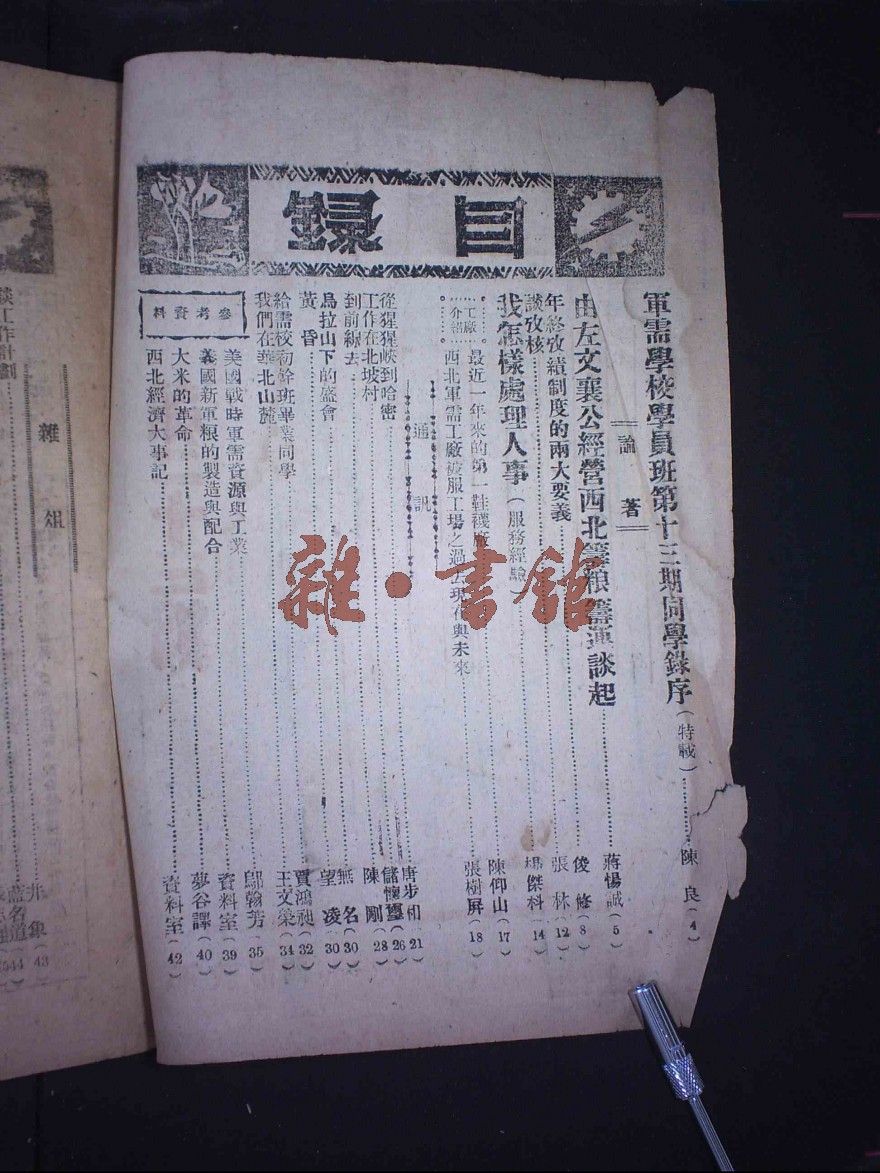 目錄
軍需學校學員班第十三期同學錄序(特載)………陳 良(4)
論 著
由左文襄公經營西北籌粮籌運談起………蔣惕誠(5)
年終攷績制度的兩大要義………俊 修(8)
談攷核………張 林(12)
我怎樣處理人事(服務經驗)………楊傑科(14)
工廠介紹
最近一年來的第一鞋襪廠………陳仰山(17)
西北軍需工廠被服工場之過去現在與未來………張樹屏(18)
通 訊
從猩猩峽到哈密………唐步 (21)
工作在北坡村………儲懷 (26)
到前線去………陳 剛(28)
烏拉山下的盛會………無 名(30)
黃 昏………望 凌(30)
給需校初幹班畢業同學………賈鴻昶(32)
我們在華北山麓………王文榮(34)
參考資料
美國戰時軍需資源與工業………鄔翰芳(35)
義國新軍粮的製造與配合………資料室(39)
大米的革命………夢谷譯(40)
西北經濟大事記………資料室(42)
雜 俎
談工作計劃
井 象(43)
藍名道